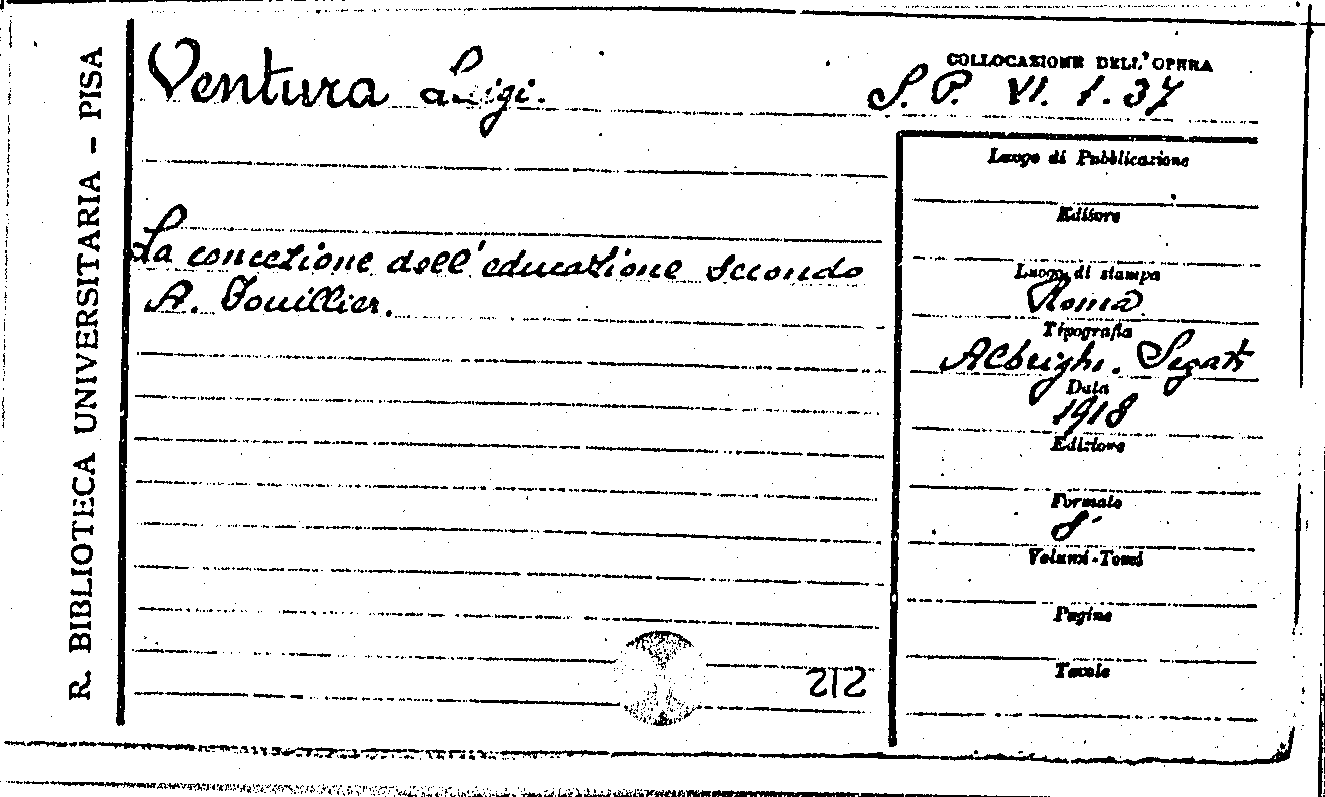 R. BIBLIOTECA UNIVERSITARIA – PISA
Ventura Luigi.
COLLOCAZIONE DELL'OPERA
S. P. VI. 1. 37
La concezione dell'educazione secondo
A. Fouillier.
Luogo di Pubblicazione
Editore
Luogo di stampa
Roma
Tipografia
Albrighi. Segati
Data
1918
Edizione
Formato
8°
Volumi-Tomi
Pagine
Tavole
212